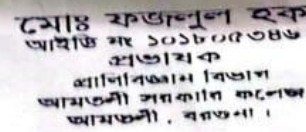 মোঃ ফজলুল হক
আইডি নং ১০১৮০৫৩৪৬
প্রভাষক
প্রাণিবিজ্ঞান বিভাগ
আমতলী সরকারি কলেজ
আমতলী, বরগুনা।